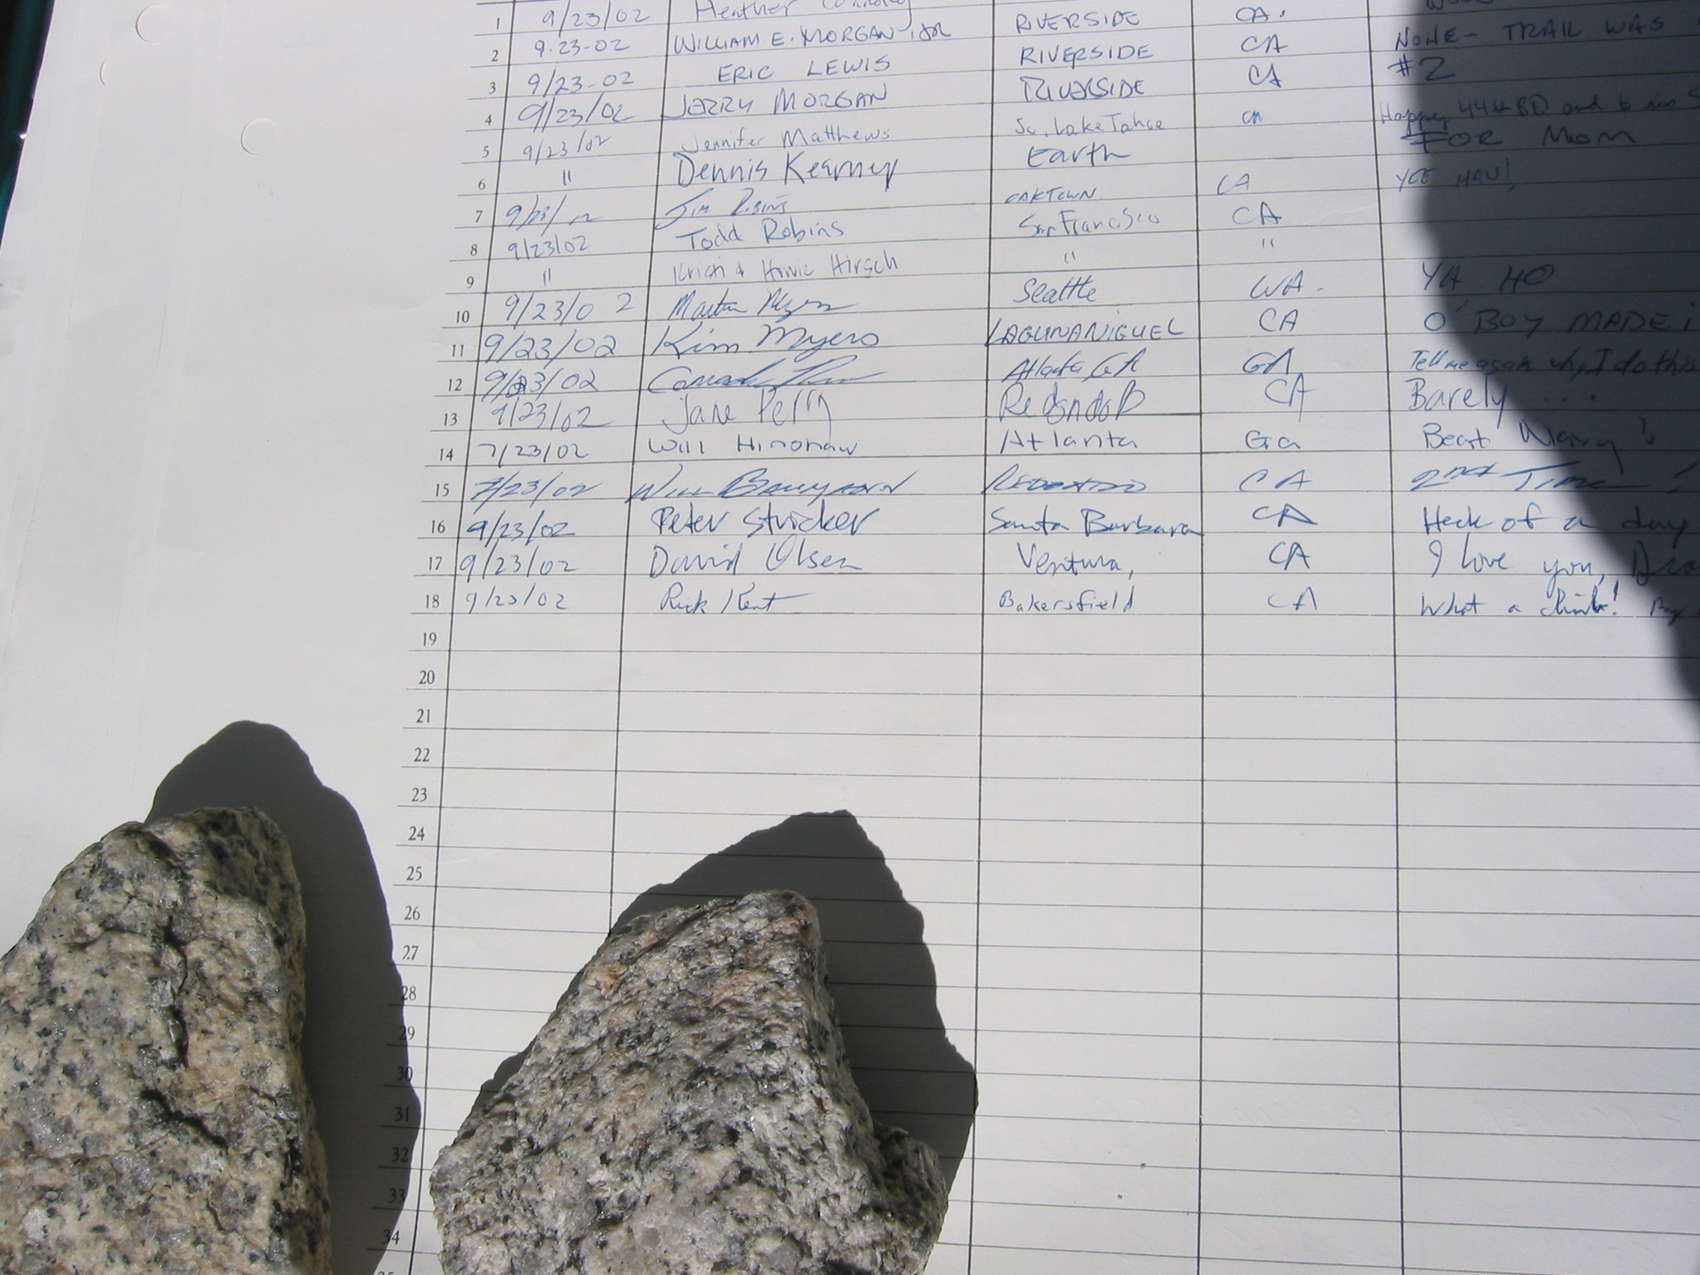 1 9/23/02 Heather RIVERSIDE CA.
2 9-23-02 WILLIAM E. MORGAN JR RIVERSIDE CA NONE - TRAIL WAS
3 9/23-02 ERIC LEWIS RIVERSIDE CA #2
4 9/23/02 JERRY MORGAN
5 9/23/02 Jennifer Matthews So. Lake Tahoe CA Happy 44th BD and to
6 " Dennis Kearney Earth FOR MOM
7 Jim OAKTOWN CA
8 9/23/02 Todd Robins San Francisco CA
9 " Hirsch " "
10 9/23/02 Seattle WA. YA HO
11 9/23/02 Kim Myers LAGUNA NIGUEL CA O'BOY MADE
12 9/23/02 Atlanta GA GA Tell me again why I do this
13 9/23/02 Jane Perry Redondo B CA Barely ....
14 9/23/02 Will Atlanta Ga
15 9/23/02 Will REDONDO CA 2ND TIME
16 9/23/02 Peter Stricker Santa Barbara CA Heck of a day
17 9/23/02 David Olsen Ventura, CA I love you,
18 9/23/02 Rick Kent Bakersfield CA What a climb!
19
20
21
22
23
24
25
26
27
28
29
30
31
32
33
34